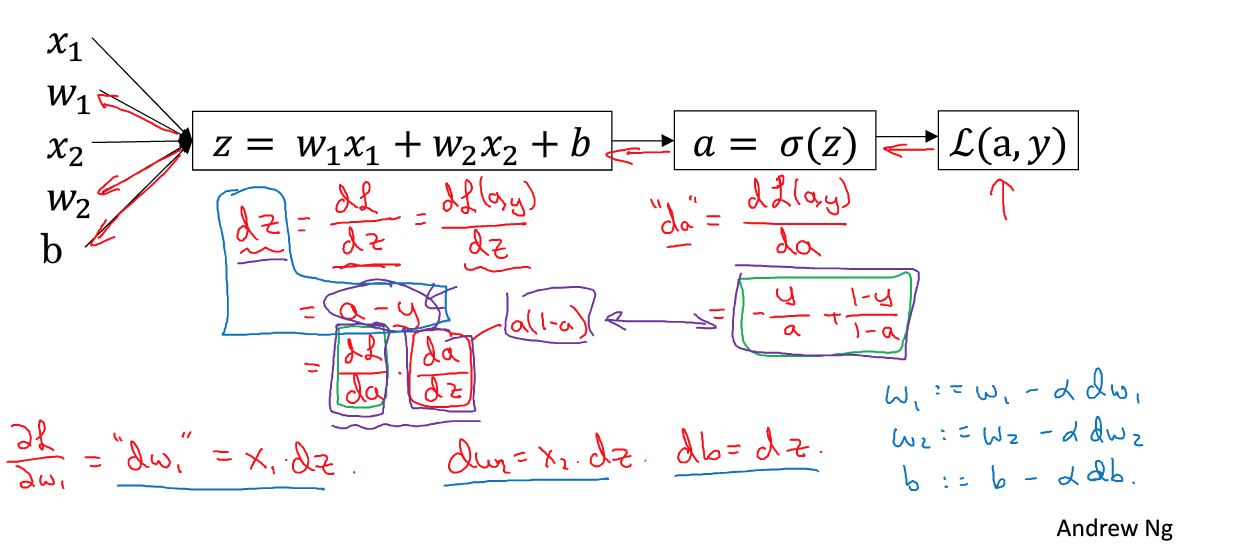 x₁
w₁
x₂
w₂
b
z = w₁x₁ + w₂x₂ + b
a = σ(z)
ℒ(a, y)
dz = dℒ/dz = dℒ(a,y)/dz
"da" = dℒ(a,y)/da
= a − y
a(1−a)
= −y/a + (1−y)/(1−a)
= dℒ/da · da/dz
∂ℒ/∂w₁ = "dw₁" = x₁·dz.
dw₂ = x₂·dz.
db = dz.
w₁ := w₁ − α dw₁
w₂ := w₂ − α dw₂
b := b − α db.
Andrew Ng